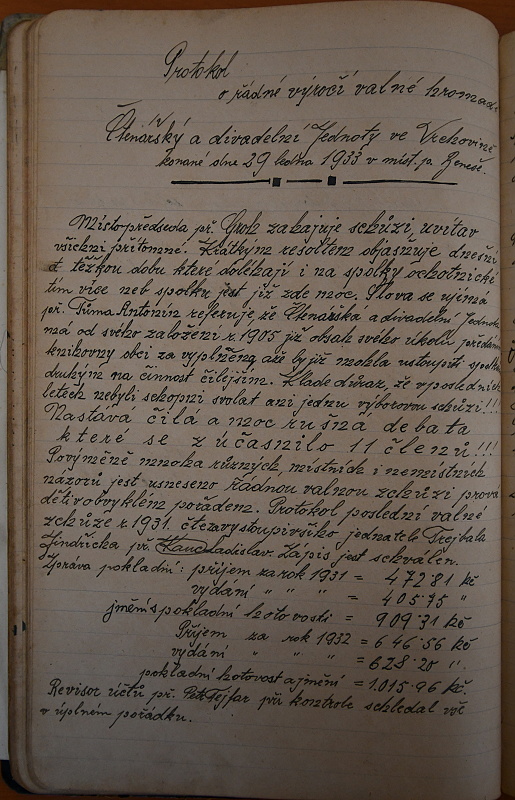 Protokol
o řádné výročí valné hromadě
Čtenářský a divadelní Jednoty ve Vrchovině
konané dne 29 ledna 1933 v míst. p. Beneše.
Místopředseda př. Groh zahajuje schůzi, uvítav
všichni přítomné. Krátkým resoltem objasňuje dnešní
a těžkou dobu které doléhají i na spolky ochotnické
tím více neb spolku jest již zde moc. Slova se ujímá
př. Tůma Antonín referuje, že Čtenářska a divadelní Jednota
má od svého založení r. 1905 již obsah svého úkolu předáním
knihovny obci za vyplněna, a že by již mohla ustoupiti spolku
druhým na činnost čilejším. Klade důraz, že v posledních
letech nebyli schopni svolat ani jednu výborovou schůzi!!!
Nastává čilá a moc rušná debata
které se zúčasnilo 11 členů!!!
Povýměně mnoha různých, místních i nemístních
názorů jest usneseno řádnou valnou zchůzi prová
děti v obvyklém pořadem. Protokol poslední valné
zchůze r. 1931. čte za vystoupivšiho jednatele Trejbala
Jindřicha př. Ladislav. Zápis jest schválen.
Zpráva pokladní: příjem za rok 1931 = 472·81 kč
vydání " " " = 405·75 "
jmění s pokladní hotovosti = 909·31 Kč
Příjem za rok 1932 = 646·56 kč
vydání " " " = 628·20 "
pokladní hotovost a jmění = 1.015·96 Kč.
Revisor účtů př. Petr Tejfar při kontrole schledal vše
v úplném pořádku.